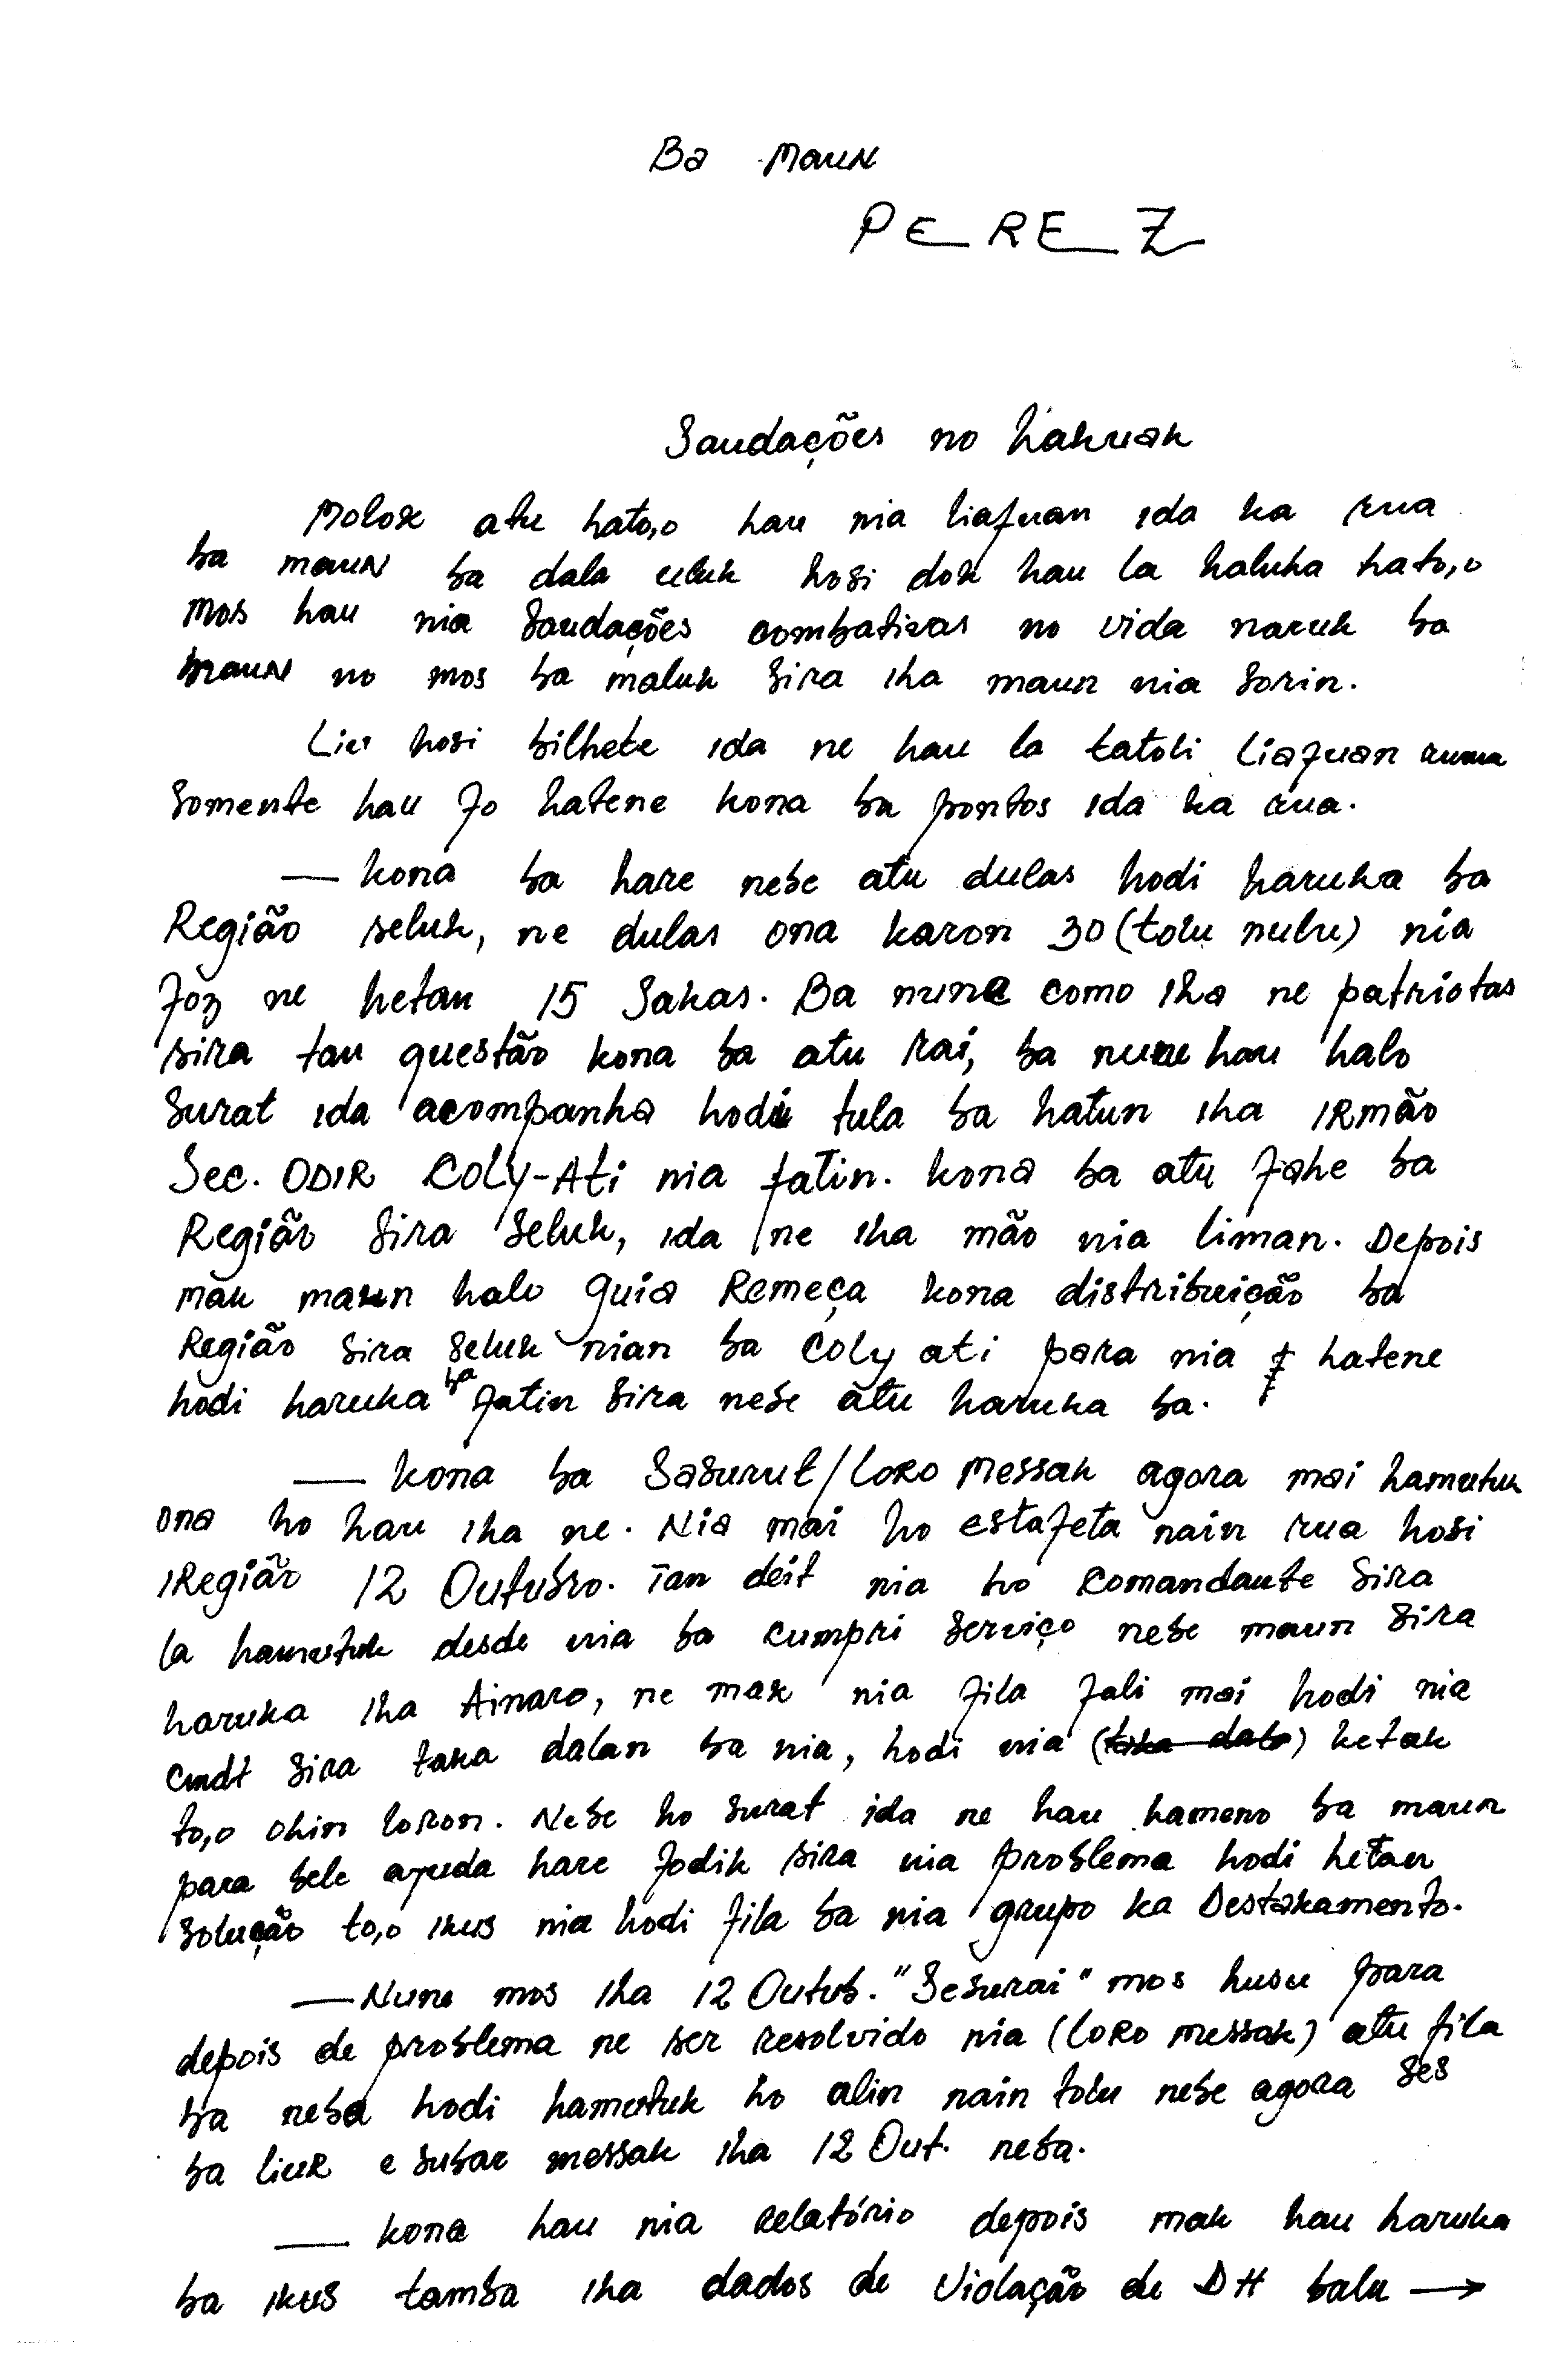 Ba Maun
PEREZ
Saudações no hakuak
Molok atu hato,o hau nia liafuan ida ka rua
ba maun ba dala uluk hosi dok hau la haluha hato,o
mos hau nia Saudações combativas no vida naruk ba
maun no mos ba maluk sira iha maun nia sorin.
Liu hosi bilhete ida ne hau la tatoli liafuan ruma
Somente hau fo hatene kona ba pontos ida ka rua.
— kona ba hare nebe atu dulas hodi haruka ba
Região seluk, ne dulas ona karon 30 (tolu nulu) nia
foz ne hetan 15 Sakas. Ba nune como iha ne patriotas
sira tau questão kona ba atu rai, ba nune hau halo
Surat ida acompanha hodi tula ba hatun iha IRmão
Sec. ODIR COLY-Ati nia fatin. kona ba atu fahe ba
Região Sira Seluk, ida ne iha mão nia liman. Depois
mak maun halo guia Remeça kona distribuição ba
Região Sira Seluk nian ba Coly ati para nia hatene
hodi haruka ba fatin Sira nebe atu haruka ba.
— kona ba Saburut/Loro Messak agora mai hamutuk
ona ho hau iha ne. Nia mai ho estafeta nain rua hosi
Região 12 Outubro. Tan deit nia ho Comandante Sira
la hamutuk desde nia ba cumpri Serviço nebe maun Sira
haruka iha Ainaro, ne mak nia fila fali mai hodi nia
Cmdt Sira taka dalan ba nia, hodi nia (taka dala) ketak
to,o ohin loron. Nebe ho surat ida ne hau hameno ba maun
para bele ajuda hare fodik sira nia problema hodi hetan
Solução to,o ikus nia hodi fila ba nia grupo ka Destakamento.
— Nune mos iha 12 Outub. "Seburai" mos husu para
depois de problema ne ser resolvido nia (LORO messak) atu fila
ba neba hodi hamutuk ho alin nain tolu nebe agora Ses
ba liur e subar messak iha 12 Out. neba.
— kona hau nia relatório depois mak hau haruka
ba ikus tamba iha dados de Violação de DH balu →